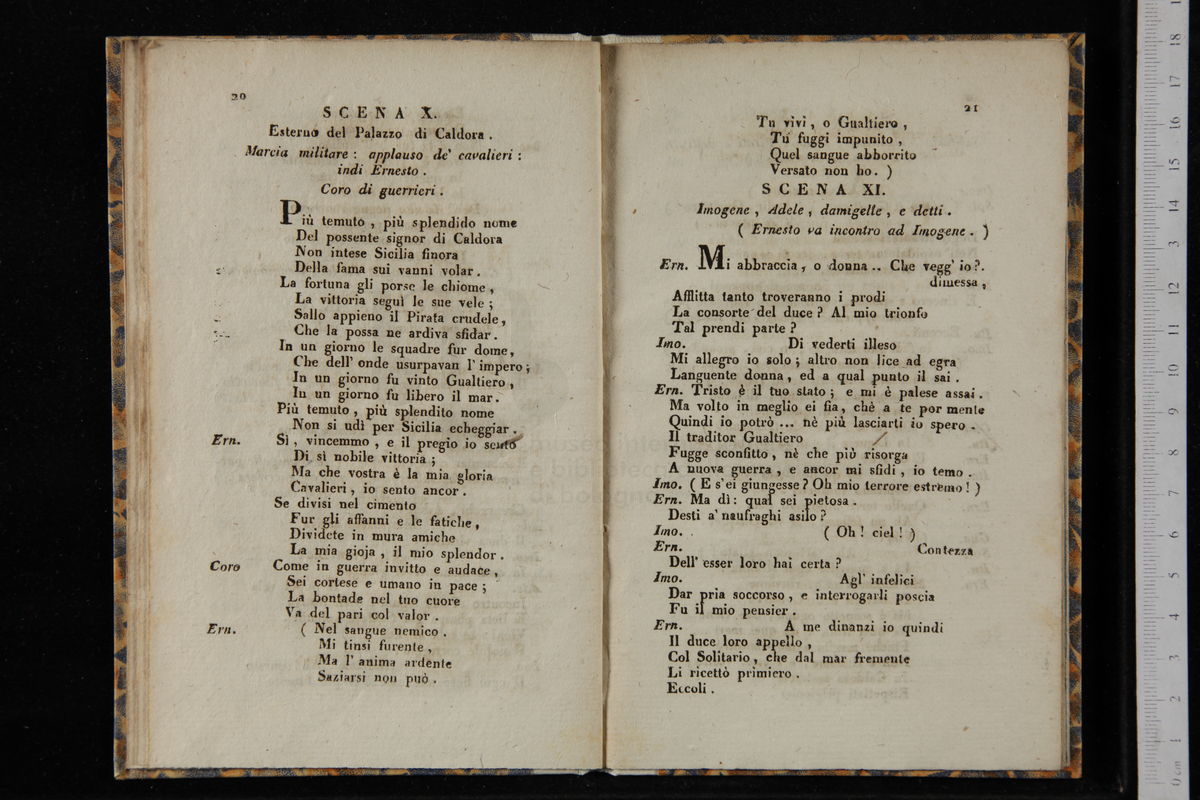 20
SCENA X.
Esterno del Palazzo di Caldora .
Marcia militare : applauso de' cavalieri :
indi Ernesto .
Coro di guerrieri .
Più temuto , più splendido nome
Del possente signor di Caldora
Non intese Sicilia finora
Della fama sui vanni volar .
La fortuna gli porse le chiome ,
La vittoria seguì le sue vele ;
Sallo appieno il Pirata crudele ,
Che la possa ne ardiva sfidar .
In un giorno le squadre fur dome ,
Che dell' onde usurpavan l' impero ;
In un giorno fu vinto Gualtiero ,
In un giorno fu libero il mar .
Più temuto , più splendito nome
Non si udì per Sicilia echeggiar .
Ern. Sì , vincemmo , e il pregio io sento
Di sì nobile vittoria ;
Ma che vostra è la mia gloria
Cavalieri , io sento ancor .
Se divisi nel cimento
Fur gli affanni e le fatiche ,
Dividete in mura amiche
La mia gioja , il mio splendor .
Coro Come in guerra invitto e audace ,
Sei cortese e umano in pace ;
La bontade nel tuo cuore
Va del pari col valor .
Ern. ( Nel sangue nemico .
Mi tinsi furente ,
Ma l' anima ardente
Saziarsi non può .
21
Tu vivi , o Gualtiero ,
Tu fuggi impunito ,
Quel sangue abborrito
Versato non ho . )
SCENA XI.
Imogene , Adele , damigelle , e detti .
( Ernesto va incontro ad Imogene . )
Ern. Mi abbraccia , o donna .. Che vegg' io ?.
dimessa ,
Afflitta tanto troveranno i prodi
La consorte del duce ? Al mio trionfo
Tal prendi parte ?
Imo. Di vederti illeso
Mi allegro io solo ; altro non lice ad egra
Languente donna , ed a qual punto il sai .
Ern. Tristo è il tuo stato ; e mi è palese assai .
Ma volto in meglio ei fia , chè a te por mente
Quindi io potrò ... nè più lasciarti io spero .
Il traditor Gualtiero
Fugge sconfitto , nè che più risorga
A nuova guerra , e ancor mi sfidi , io temo .
Imo. ( E s' ei giungesse ? Oh mio terrore estremo ! )
Ern. Ma dì : qual sei pietosa .
Desti a' naufraghi asilo ?
Imo. . ( Oh ! ciel ! )
Ern. Contezza
Dell' esser loro hai certa ?
Imo. Agl' infelici
Dar pria soccorso , e interrogarli poscia
Fu il mio pensier .
Ern. A me dinanzi io quindi
Il duce loro appello ,
Col Solitario , che dal mar fremente
Li ricettò primiero .
Eccoli .